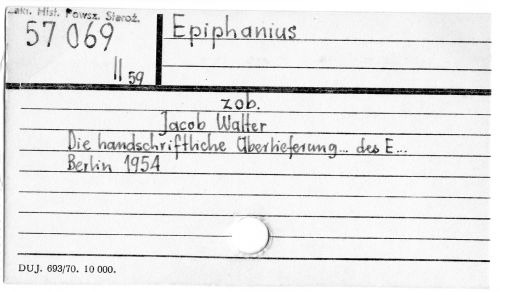 Zakł. Hist. Powsz. Staroż.
57 069
II 59
Epiphanius
zob.
Jacob Walter
Die handschriftliche Überlieferung... des E...
Berlin 1954
DUJ. 693/70. 10 000.